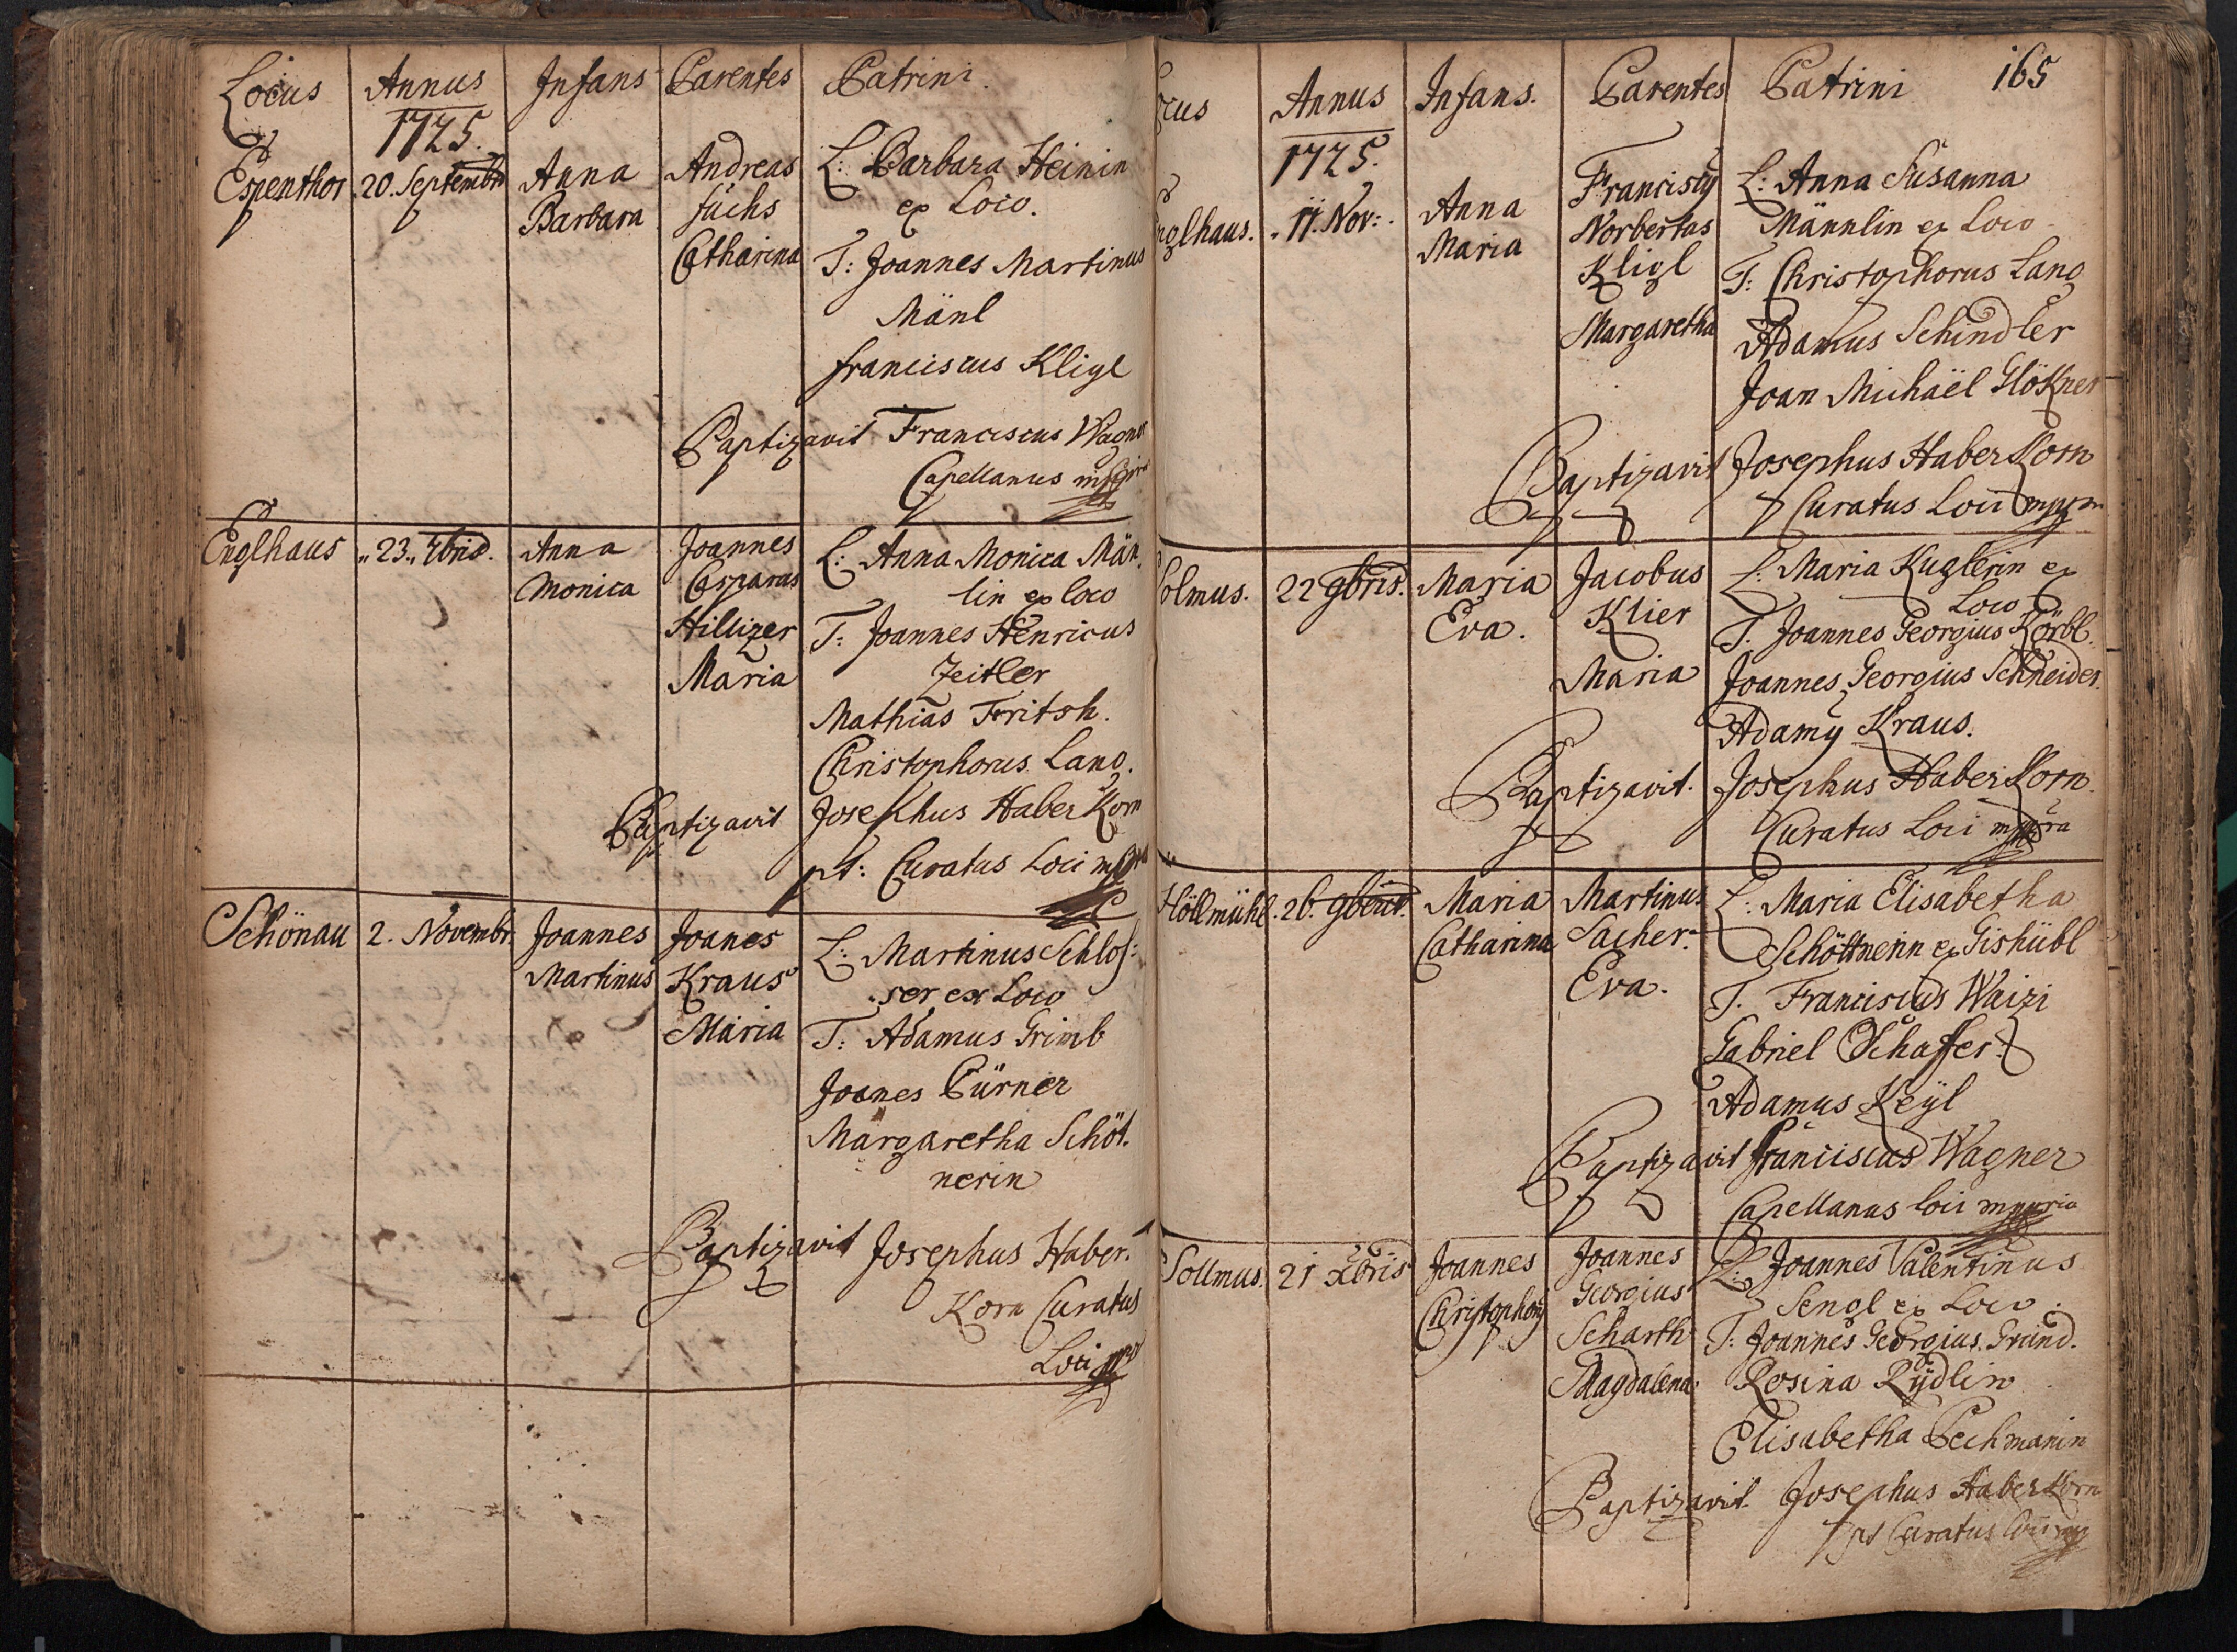 Locus Annus Infans Parentes Patrini
1725.
Espenthor 20. Septembr Anna Andreas L: Barbara Heinin
Barbara fuchs ex Loco.
Catharina T: Joannes Martinus
Mänl
franciscus Kligl
Baptizavit Franciscus Wagner
Capellanus
Englhaus 23. Anna Joannes L: Anna Monica Män
Monica Casparus lin ex loco
Hillizer T: Joannes Henricus
Maria Zeitler
Mathias Fritsh.
Christophorus Lang.
Baptizavit Josephus HaberKorn
pt: Curatus Loci
Schönau 2. Novembr. Joannes Joanes L: Martinus Schlos:
Martinus Kraus ser ex Loco
Maria T: Adamus Grimb
Joanes Pürner
Margaretha Schöt.
nerin
Baptizavit Josephus Haber.
Korn Curatus
Loci
cus Annus Infans. Parentes Patrini 165
1725.
nglhaus. 11. Nov: Anna Franciscy L: Anna Susanna
Maria Norbertus Männlin ex Loco
Kligl T: Christophorus Lang
Margaretha Adamus Schindler
Joan Michäel Glökner
Baptizavit Josephus HaberKorn
Curatus Loci
Solmus. 22 9bris. Maria Jacobus L: Maria Kuglerin ex
Eva. Klier Loco
T. Joannes Georgius Körbl.
Maria Joannes Georgius Schneider.
Adamy Kraus.
Baptizavit. Josephus HaberKorn.
Curatus Loci
Höllmühl. 26. Maria Martinus L: Maria Elisabetha
Catharina Sacher. Schöttnerin ex Gishübl
Eva. T. Franciscus Waizi
Gabriel Schaffer.
Adamus Keÿl
Baptizavit franciscus Wagner
Capellanus loci
Sollmus. 21 Xbris Joannes Joannes L: Joannes Valentinus
Christophory Georgius Sengl ex Loco.
Scharth T: Joannes Georgius Gründ.
Magdalena Rosina Rÿdlin
Elisabetha Pechmanin
Baptizavit Josephus HaberKorn
pt Curatus Loci